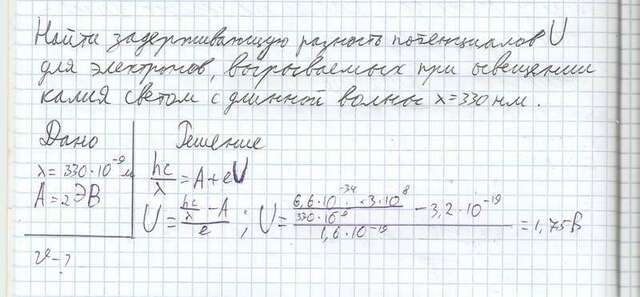 Найти задерживающую разность потенциалов U
для электронов, вырываемых при освещении
калия светом с длинной волны λ=330 нм.
Дано
Решение
λ=330·10⁻⁹ м
A=2ЭВ
hc/λ = A+eU
U = (hc/λ − A)/e ; U = (6,6·10⁻³⁴·3·10⁸/330·10⁻⁹ − 3,2·10⁻¹⁹)/1,6·10⁻¹⁹ = 1,75 В
U-?